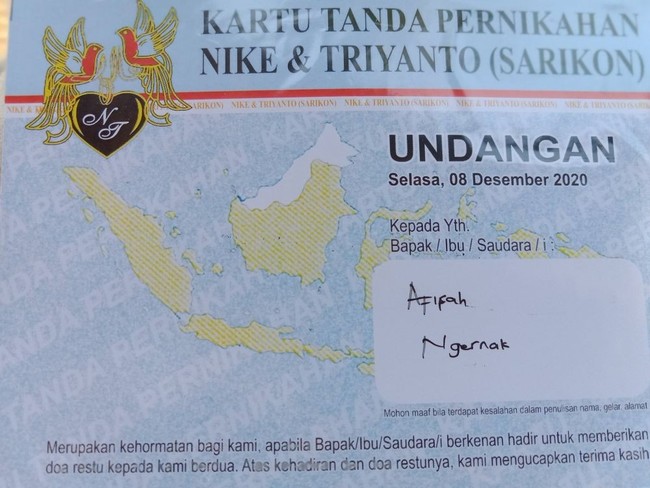 KARTU TANDA PERNIKAHAN
NIKE & TRIYANTO (SARIKON)
NIKE & TRIYANTO (SARIKON) NIKE & TRIYANTO (SARIKON) NIKE & TRIYANTO (SARIKON) NIKE & TRIYANTO (SARIKON)
NT
UNDANGAN
Selasa, 08 Desember 2020
Kepada Yth.
Bapak / Ibu / Saudara / i :
Afifah
Ngernak
Mohon maaf bila terdapat kesalahan dalam penulisan nama, gelar, alamat
Merupakan kehormatan bagi kami, apabila Bapak/Ibu/Saudara/i berkenan hadir untuk memberikan
doa restu kepada kami berdua. Atas kehadiran dan doa restunya, kami mengucapkan terima kasih